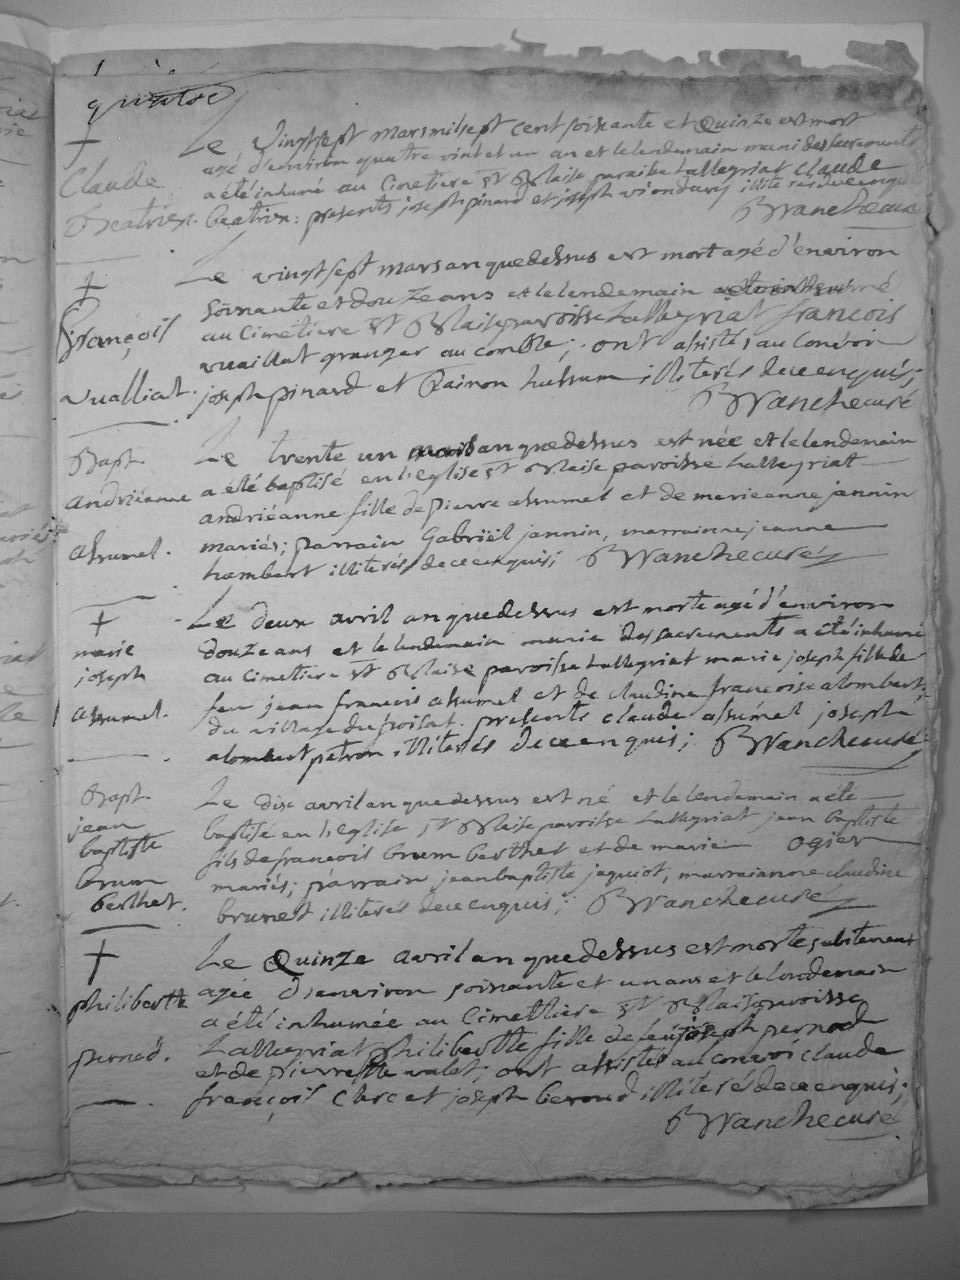 quatre
† Claude Beatrix.
Le Vingtsept mars mil sept cent soixante et Quinze est mort
agé d'environ quatre vint et un an et le lendemain muni des sacrements
a été inhumé au Cimetiere St Blaise paroisse Lalleyriat Claude
Beatrix: presents joseph pinard et joseph viondury illité
BVVanche curé
† François vualliat.
Le vingt sept mars an que dessus est mort agé d'environ
soixante et douze ans et le lendemain
au Cimétiere St Blaise paroisse Lalleyriat françois
vuaillat granger au comble; ont assistés au Convoi
joseph pinard et illiterés de ce enquis;
BVVanche curé
Bapt andriéanne assumel.
Le trente un mars an que dessus est née et le lendemain
a été baptisé en l'eglise St Blaise paroisse Lalleyriat
andriéanne fille de pierre assumel et de marieanne jannin
mariés; parrain Gabriël jannin, marrainne jeanne
humbert illiterés de ce enquis; BVVanche curé
† marie joseph assumel.
Le deux avril an que dessus est morte agé d'environ
douze ans et le lendemain munie des sacrements a été inhumé
au Cimetiere St Blaise paroisse Lalleyriat marie joseph fille de
feu jean francois assumel et de claudine françoise alombert;
du village du poisat. presents claude assumel joseph
alombert petron illiterés de ce enquis; BVVanche curé
Bapt jean baptiste brun berthet.
Le dix avril an que dessus est né et le lendemain a été
baptisé en l'eglise St Blaise paroisse Lalleyriat jean baptiste
fils de francois brun berthet et de marie ogier
mariés; parrain jean baptiste jaquiot, marrainne claudine
brunet illiterés de ce enquis; BVVanche curé
† philiberte pernod.
Le Quinze avril an que dessus est morte subitement
agée d'environ soixante et un ans et le lendemain
a été inhumée au Cimettiere St Blaise paroisse
Lalleyriat philiberte fille de feu joseph pernod
et de pierrette valet; ont assistés au convoi claude
françois clerc et joseph beroud illiterés de ce enquis;
BVVanche curé